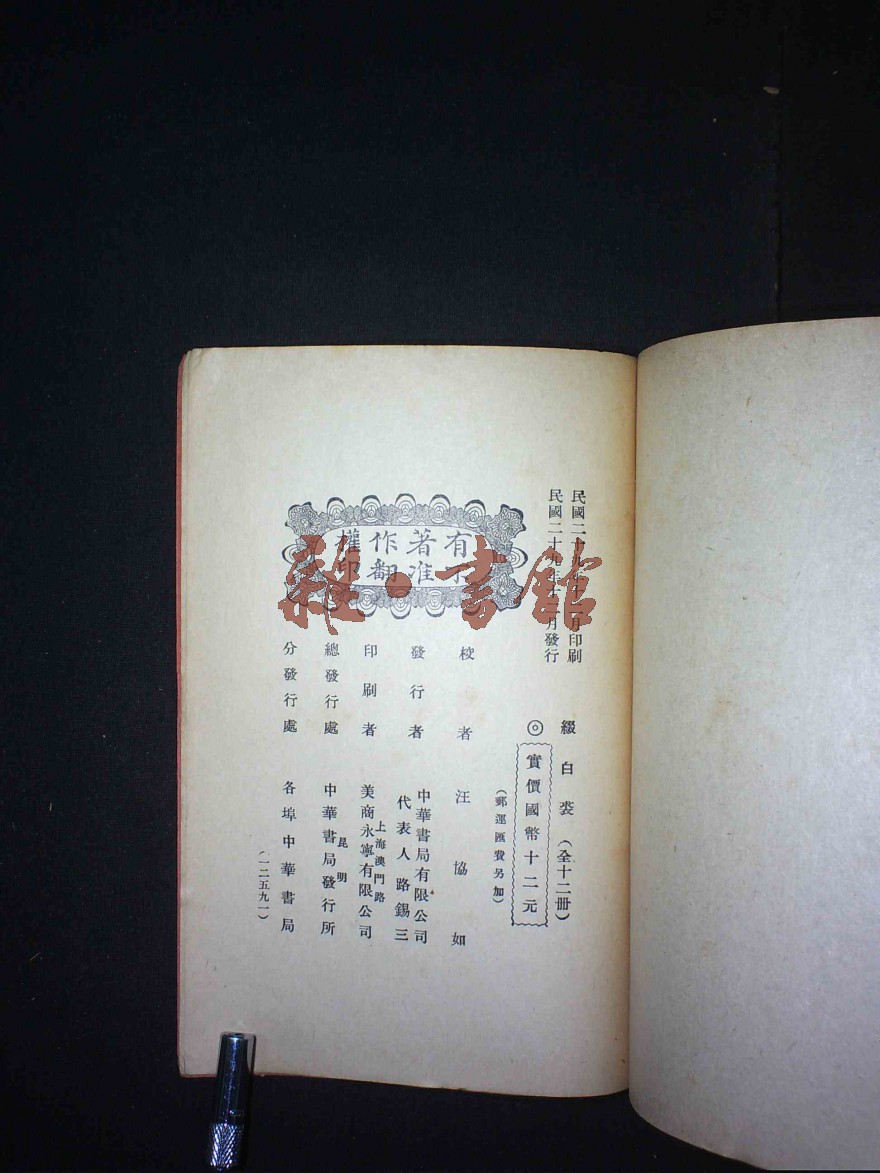 民國二十九年十一月印刷
民國二十九年十一月發行
綴白裘（全十二冊）
◎實價國幣十二元
（郵運匯費另加）
有著作權
不准翻印
校者 汪協如
發行者 中華書局有限公司
代表人路錫三
上海澳門路
印刷者 美商永寧有限公司
昆明
總發行處 中華書局發行所
分發行處 各埠中華書局
（一二五九一）
雜·書館